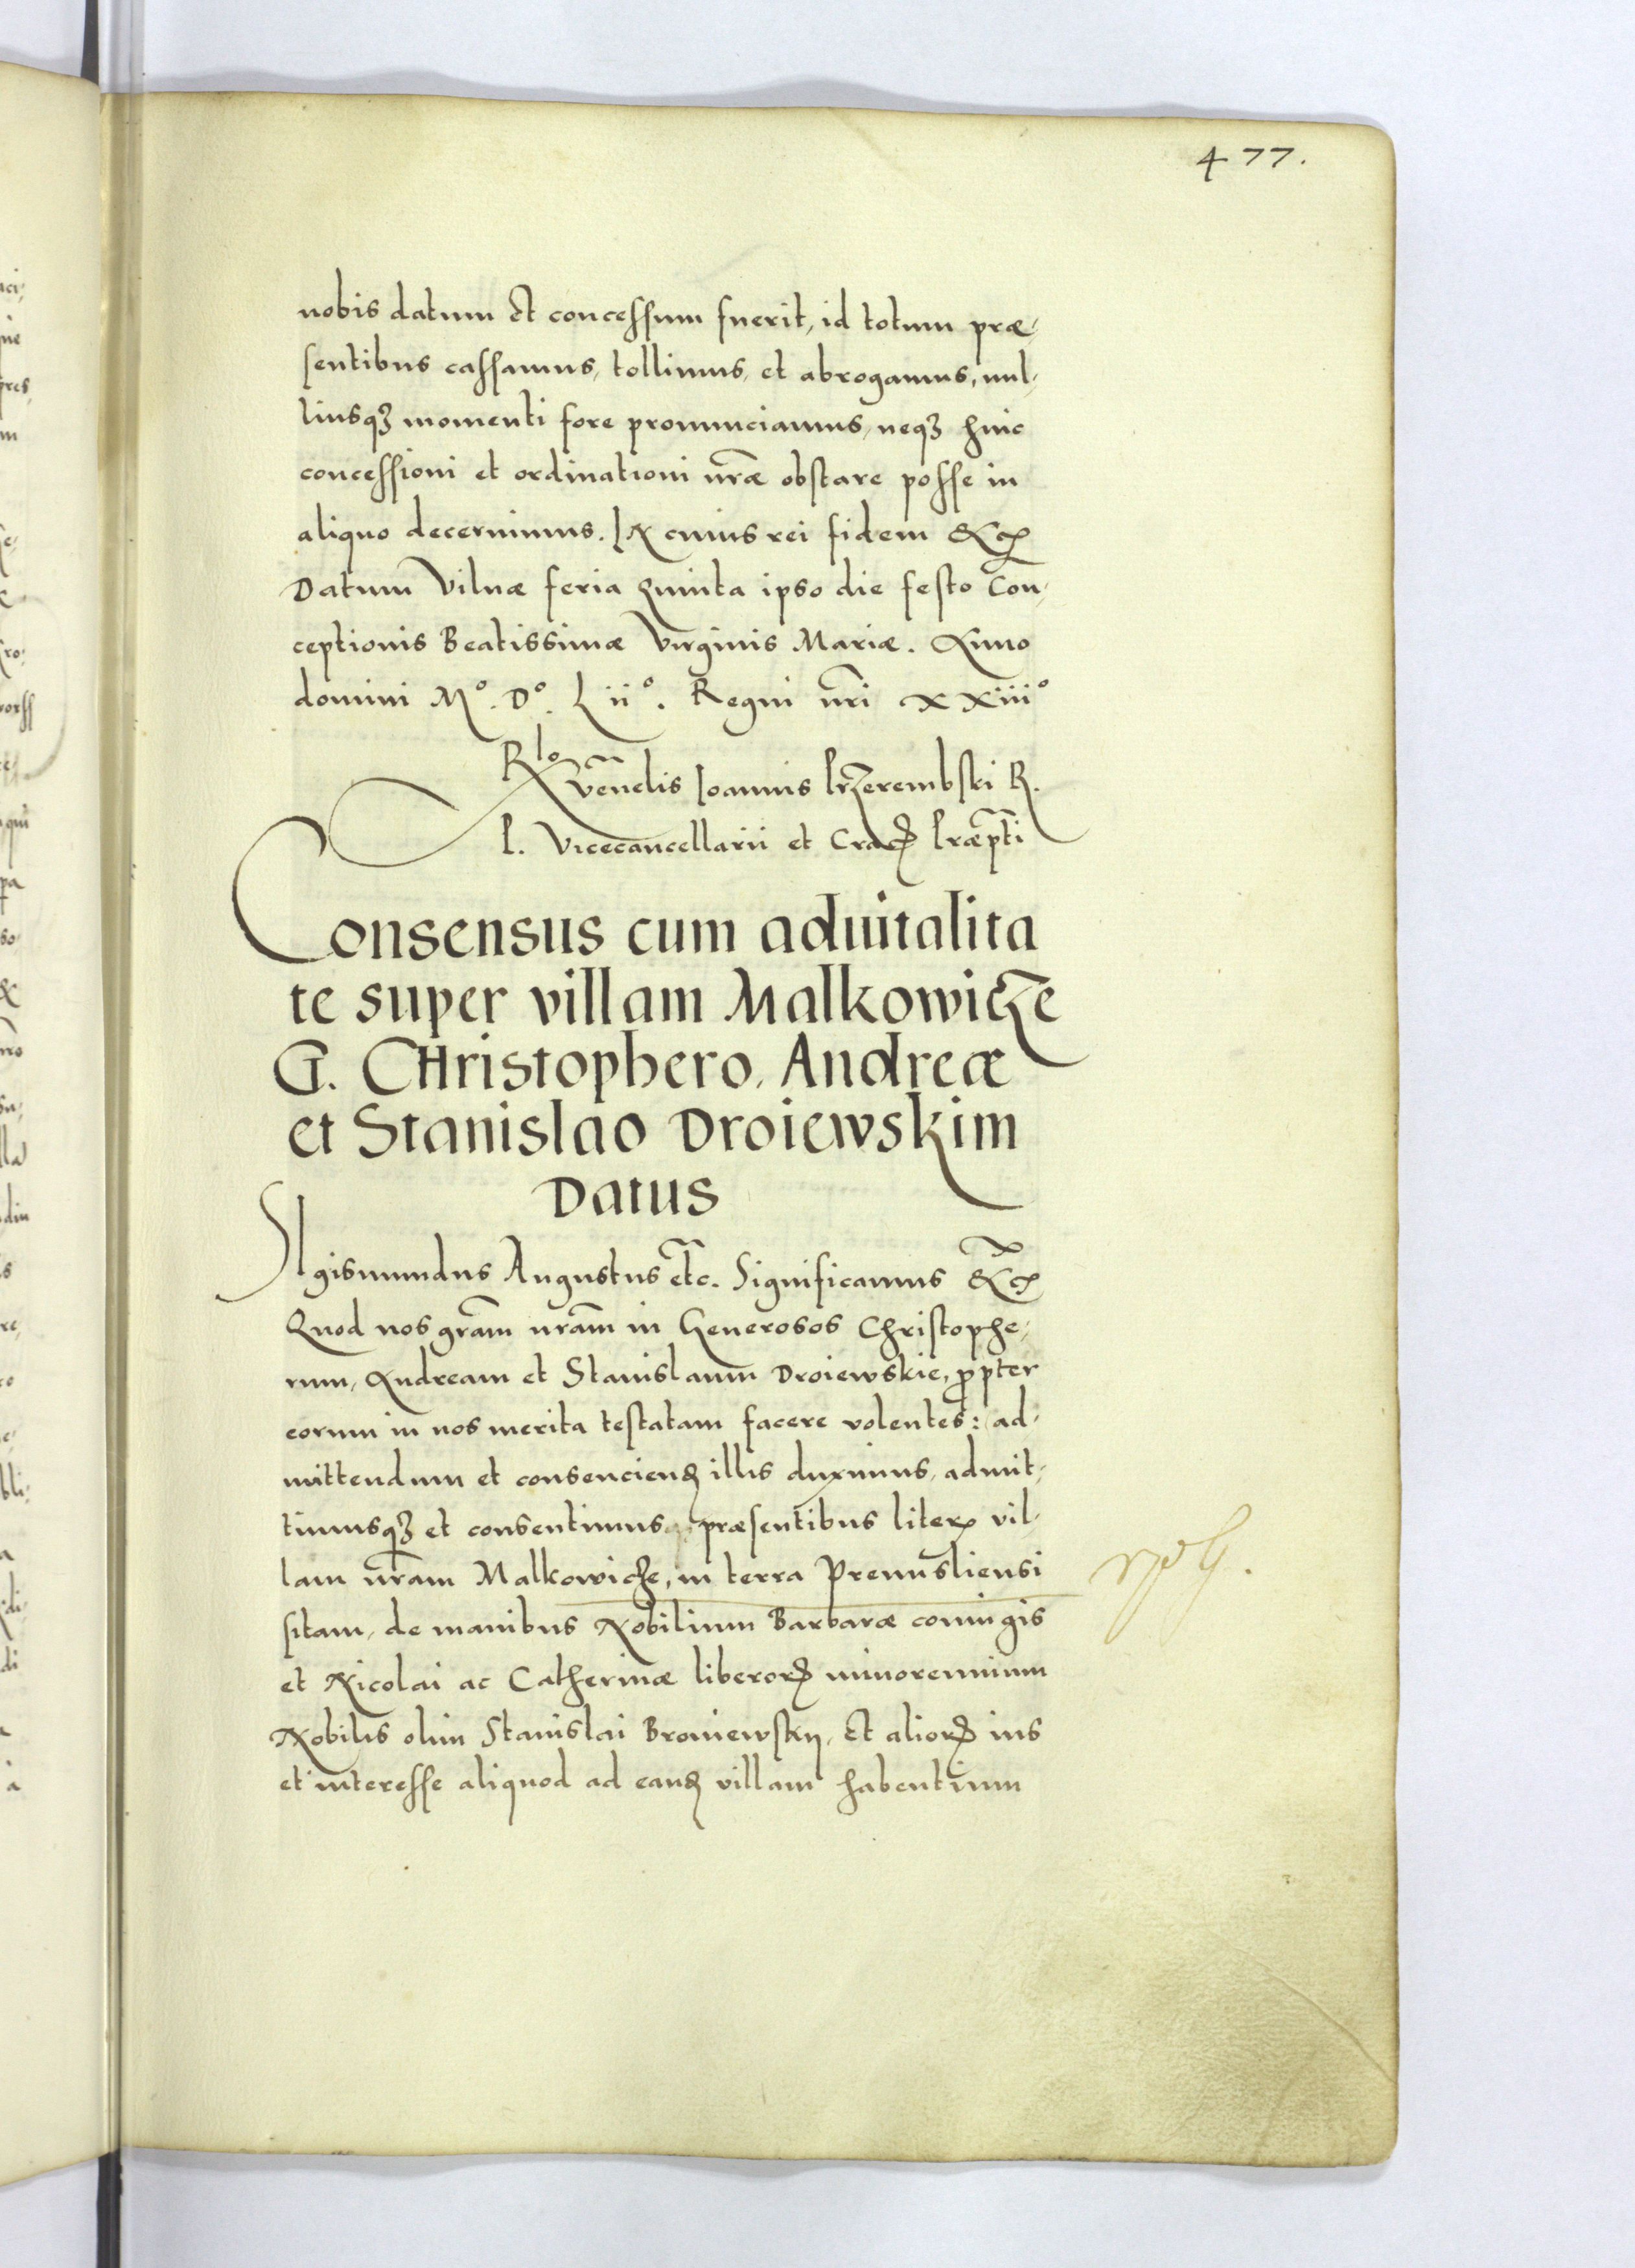 477.
nobis datum et concessum fuerit, id totum præ-
sentibus cassamus, tollimus, et abrogamus, nul-
liusqꝫ momenti fore pronunciamus, neqꝫ huic
concessioni et ordinationi nr̃æ obstare posse in
aliquo decernimus. In cuius rei fidem &cꝫ
Datum Vilnæ feria quinta ipso die festo Con-
ceptionis Beatissimæ Virginis Mariæ. Anno
domini Mº. Dº. Liiº. Regni nr̃i xxiiiº
Rlo
Veñelis Ioannis Przerembski R.
P. Vicecancellarii et Craꝯ Præpti
Consensus cum aduitalita
te super villam Malkowicze
G. CHristophero, Andreæ
et Stanislao Droiewskim
Datus
SIgismundus Augustus etc. Significamus &cꝫ
Quod nos gram̃ nram̃ in Generosos Christophe-
rum, Andream et Stanislaum Droiewskie, ꝓpter
eorum in nos merita testatam facere volentes: ad-
mittendum et consenciendꝫ illis duximus, admit-
timusqꝫ et consentimus præsentibus literꝭ vil-
lam nram̃ Malkowicze, in terra Premisliensi
sitam, de manibus Nobilium Barbaræ coniugis
et Nicolai ac Catherinæ liberorꝝ minorennium
Nobilis olim Stanislai Broniewskij, et aliorꝝ ius
et interesse aliquod ad eandꝫ villam habentium